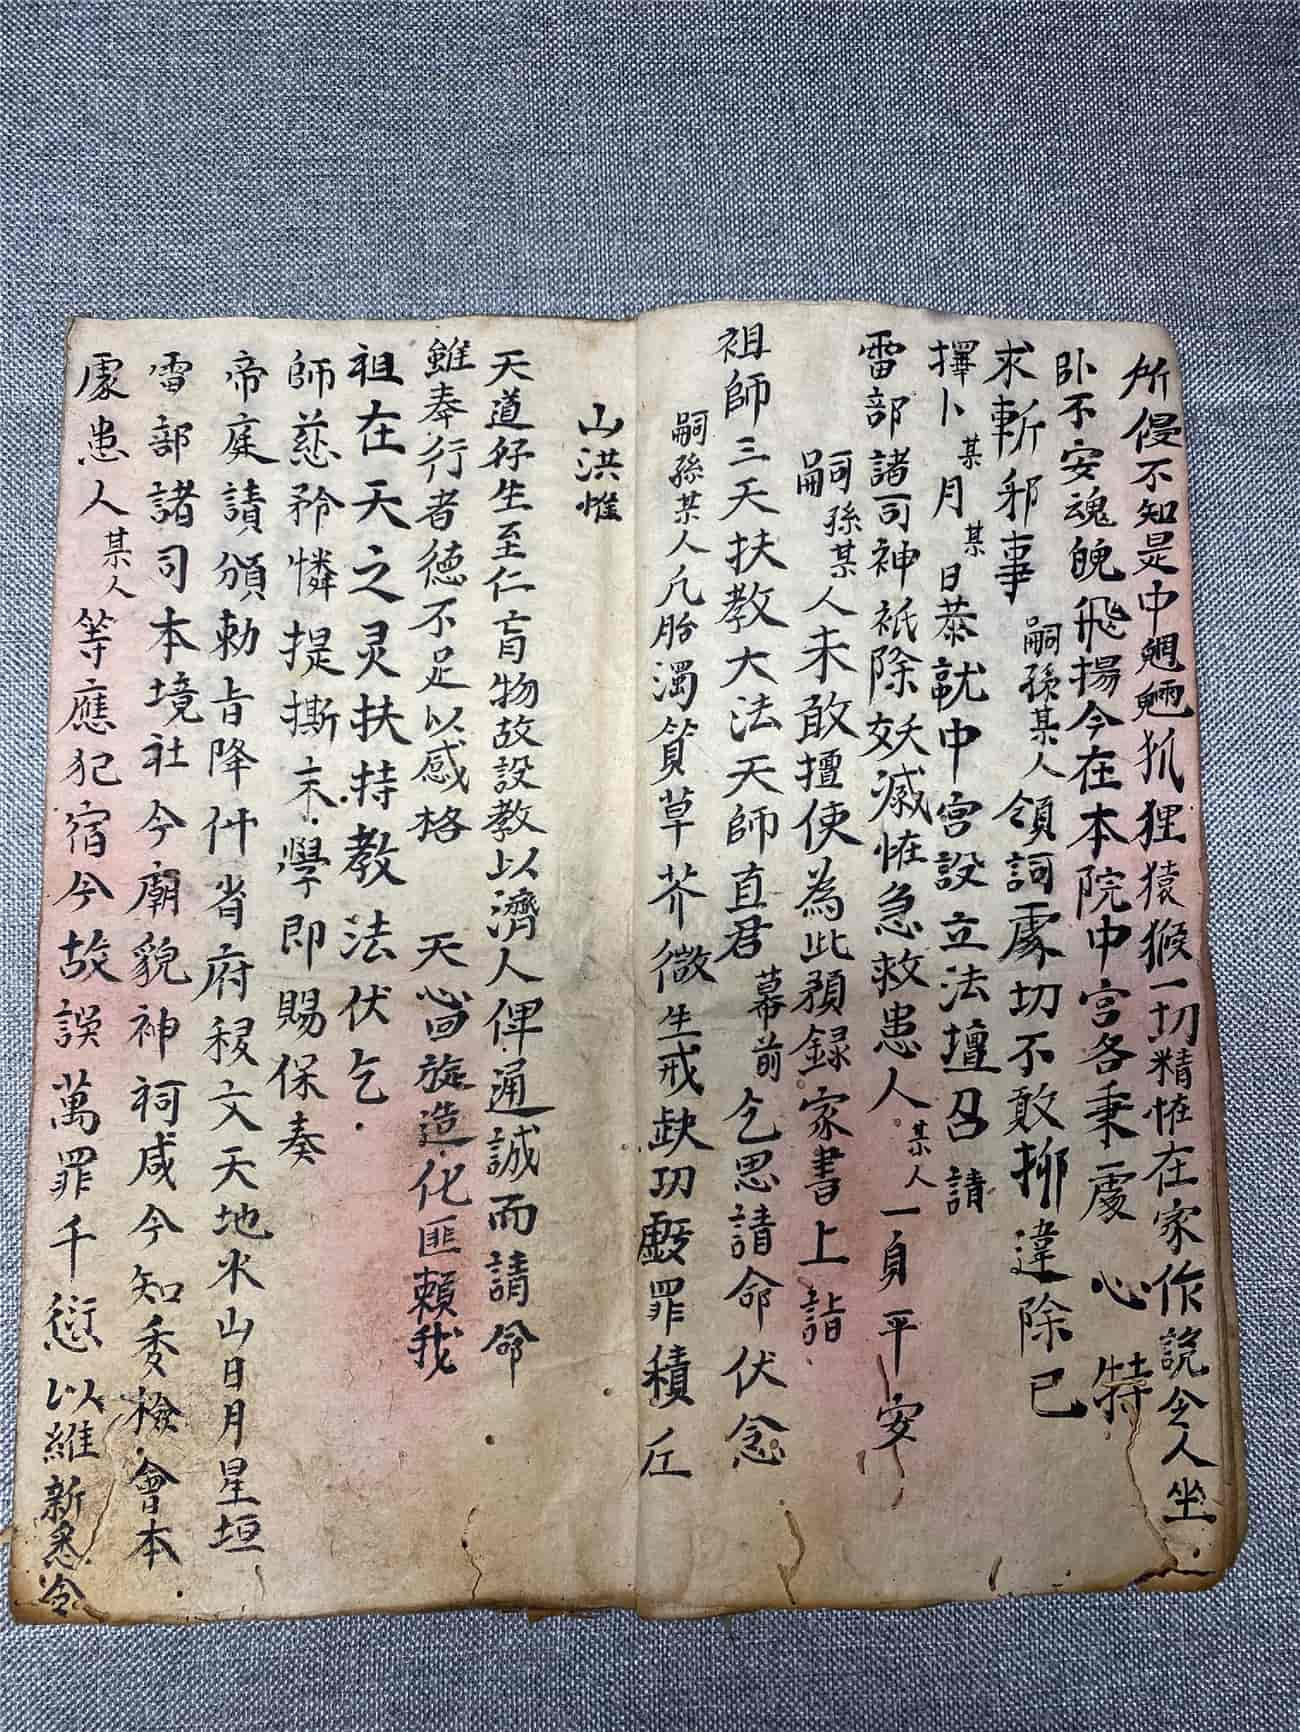 所侵不知是中魍魎狐狸猿猴一切精怪在家作說令人坐
卧不安魂魄飛揚今在本院中宮各秉虔心特
求斬邪事嗣孫某人領詞虔切不敢抑違除已
擇卜某月某日恭就中宮設立法壇召請
雷部諸司神祇除妖滅怪急救患人某人一身平安
嗣孫某人未敢擅使為此預録家書上詣
祖師三天扶教大法天師直君幕前乞恩請命伏念
嗣孫某人凡胎濁質草芥微生戒缺功虧罪積丘
山洪惟
天道好生至仁育物故設教以濟人俾通誠而請命
雖奉行者德不足以感格天心回旋造化匪賴我
祖在天之灵扶持教法伏乞
師慈矜憐提撕末學即賜保奏
帝庭請頒勅旨降仵省府移文天地水山日月星垣
雷部諸司本境社令廟貌神祠咸令知委檢會本
處患人某人等應犯宿今故誤萬罪千愆以維新悉令